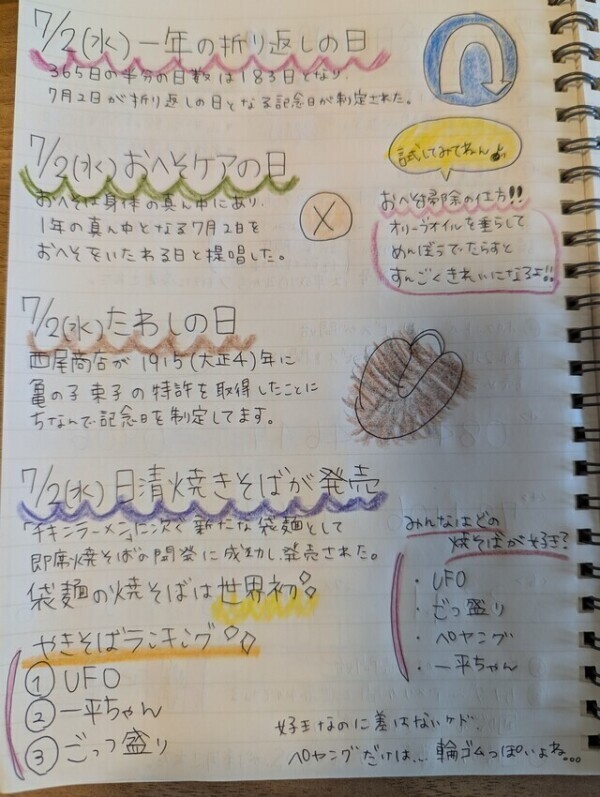 7/2(水)一年の折り返しの日
365日の半分の日数は183日となり、
7月2日が折り返しの日となる記念日が制定された。
7/2(水)おへそケアの日
おへそは身体の真ん中にあり、
1年の真ん中となる7月2日を
おへそをいたわる日と提唱した。
X
試してみてねん♪
おへそ掃除の仕方!!
オリーブオイルを垂らして
めんぼうでたらすと
すんごくきれいになるよ!!
7/2(水)たわしの日
西尾商店が1915(大正4)年に
亀の子束子の特許を取得したことに
ちなんで記念日を制定してます。
7/2(水)日清焼きそばが発売
「チキンラーメン」に次ぐ新たな袋麺として
即席焼そばの開発に成功し発売された。
袋麺の焼そばは世界初
やきそばランキング
① UFO
② 一平ちゃん
③ ごっつ盛り
みんなはどの
焼そばが好き?
・UFO
・ごっ盛り
・ペヤング
・一平ちゃん
好きなのに差はないケド、
ペヤングだけは… 輪ゴムっぽいよね…